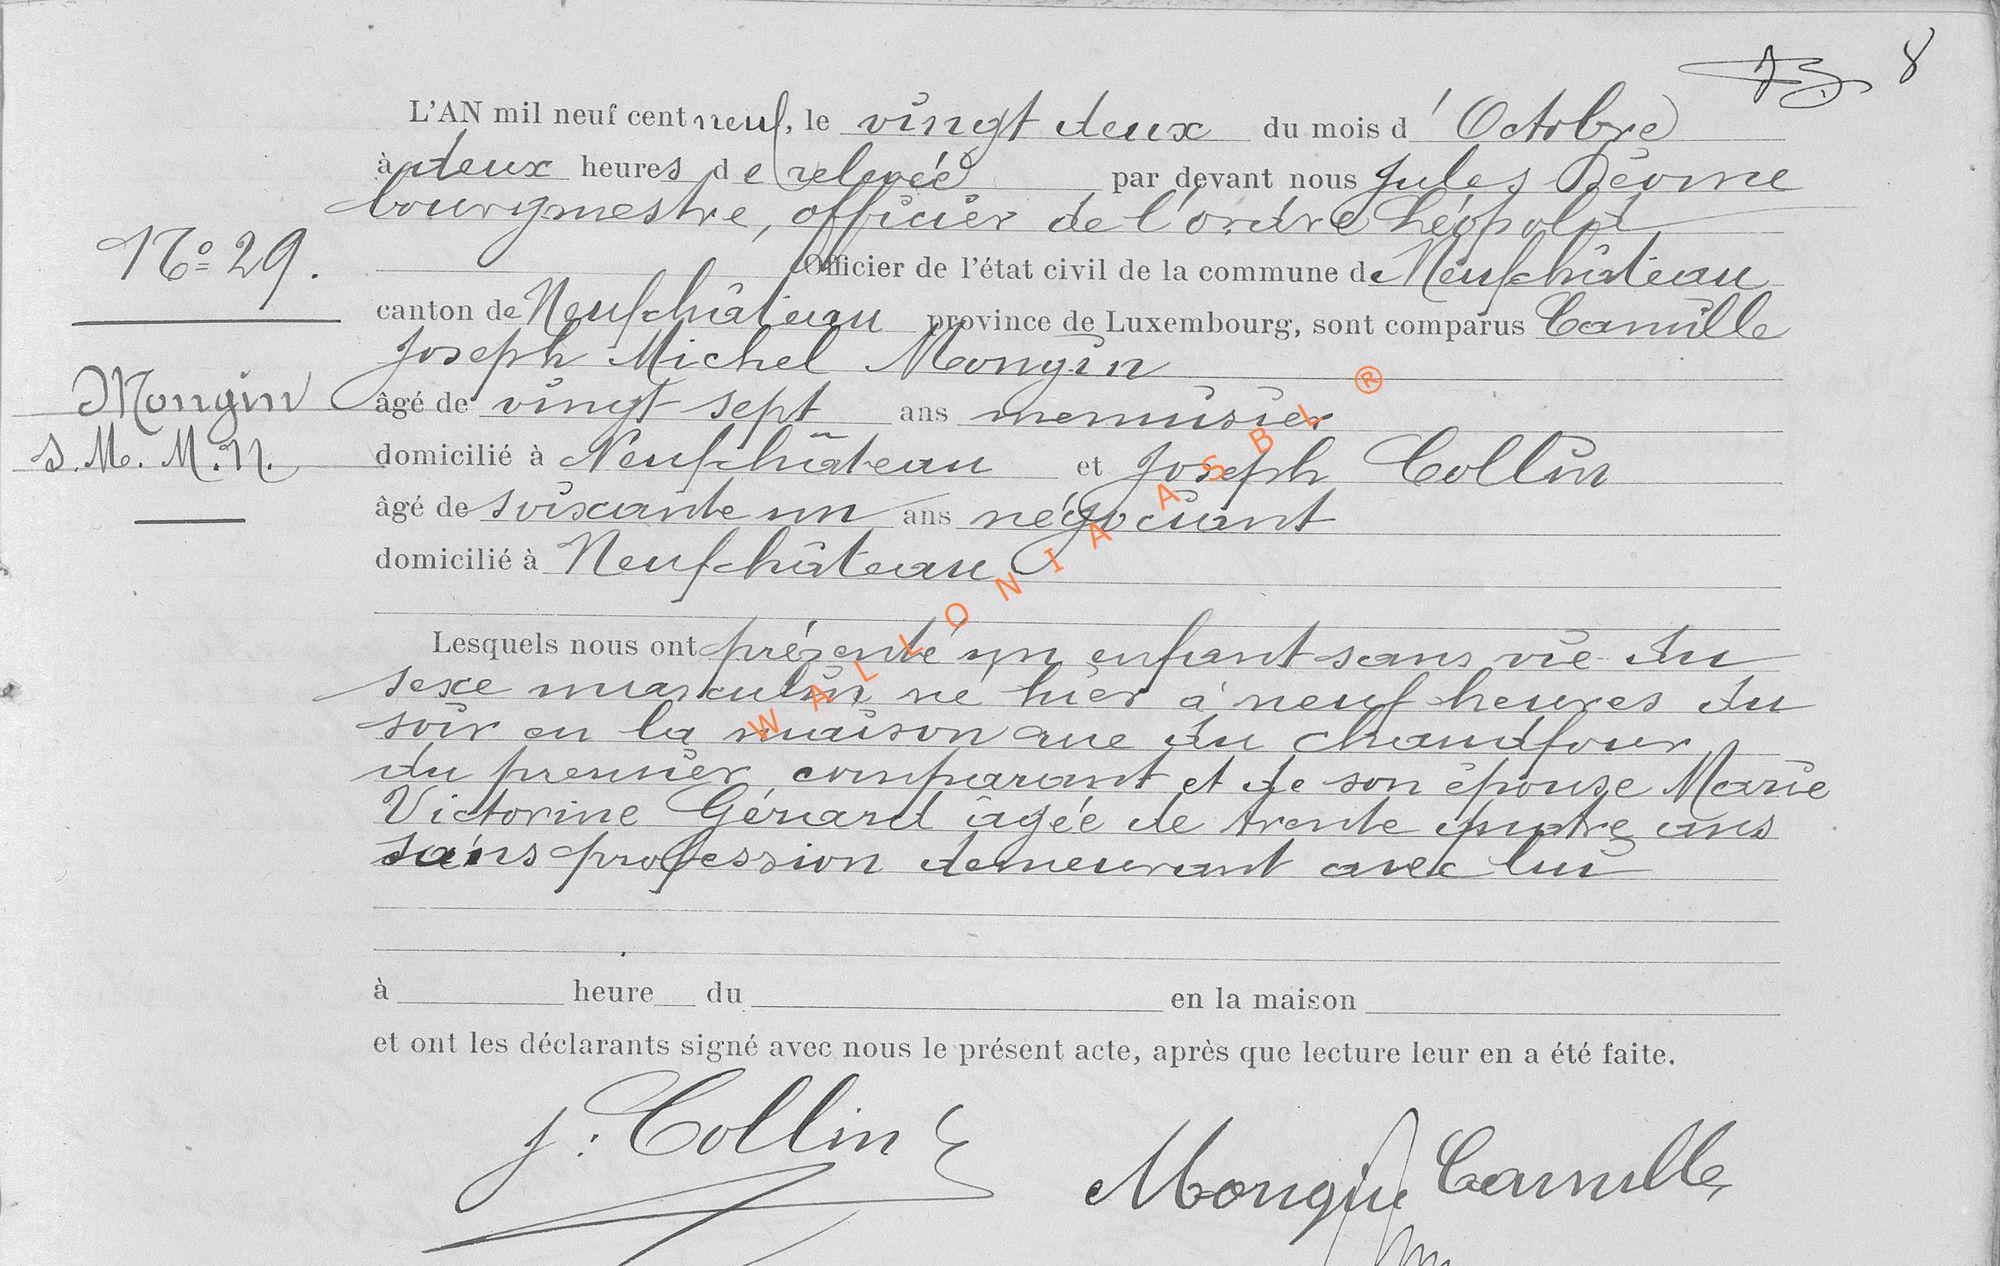 8
L'AN mil neuf cent neuf, le vingt deux du mois d'Octobre
à deux heures de relevée par devant nous Jules
bourgmestre, officier de l'ordre Léopold
Officier de l'état civil de la commune de Neufchâteau
canton de Neufchâteau province de Luxembourg, sont comparus Camille
Joseph Michel Mongin
âgé de vingt sept ans menuisier
domicilié à Neufchâteau et Joseph Collin
âgé de soixante un ans négociant
domicilié à Neufchâteau
Lesquels nous ont présenté un enfant sans vie du
sexe masculin né hier à neuf heures du
soir en la maison rue du chaudfour
du premier comparant et de son épouse Marie
Victorine Gérard âgée de trente quatre ans
sans profession demeurant avec lui
à heure du en la maison
et ont les déclarants signé avec nous le présent acte, après que lecture leur en a été faite.
J. Collin
Mongin Camille
No 29.
Mongin
s. M. M. N.
WALLONIA ASBL ®